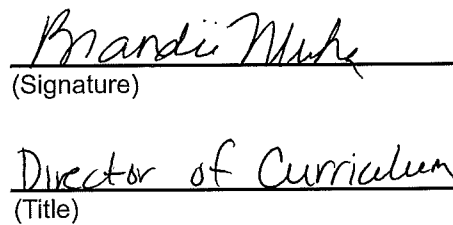 Brandii
(Signature)
Director of Curriculum
(Title)